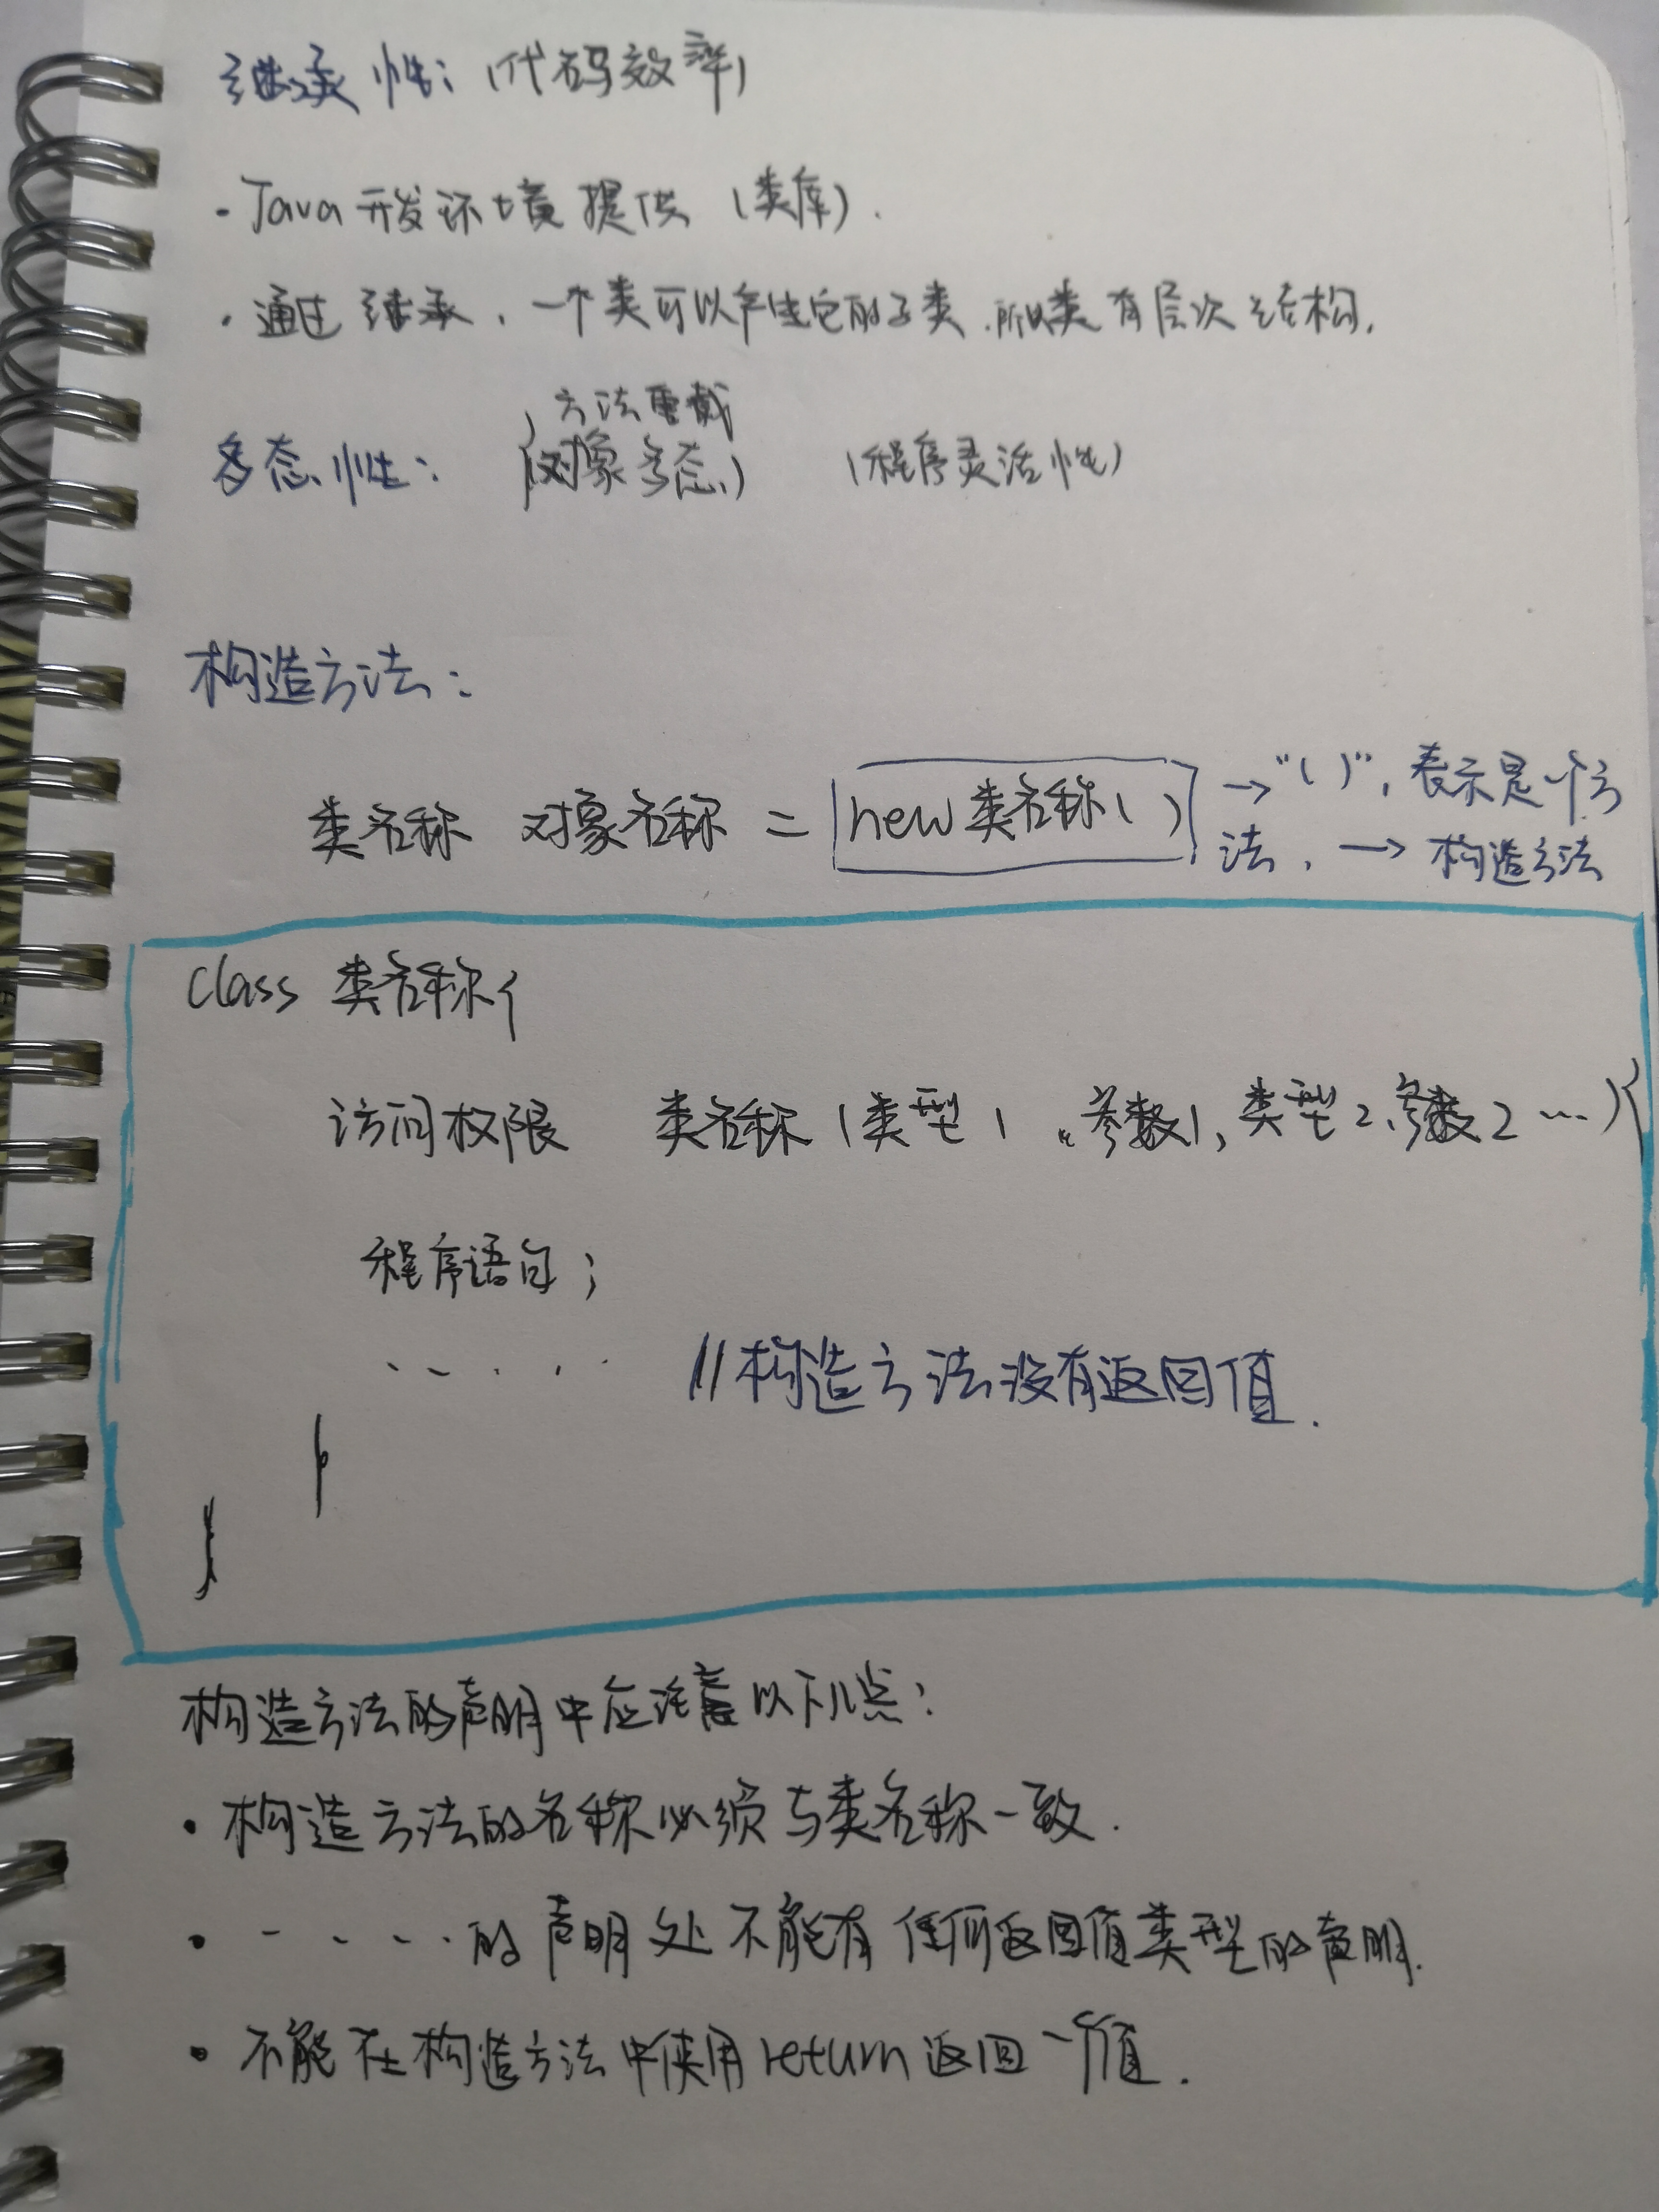 继承性：（代码效率）
·Java开发环境提供（类库）.
·通过继承，一个类可以产生它的子类.所以类有层次结构.
方法重载
多态性：{对象多态） （程序灵活性）
构造方法：
类名称 对象名称 = new类名称() →“()”，表示是一个方
法，→ 构造方法
class 类名称{
访问权限 类名称（类型1 参数1,类型2、参数2…）{
程序语句；
…… //构造方法没有返回值.
}
}
构造方法的声明中应注意以下几点：
·构造方法的名称必须与类名称一致.
·……的声明处不能有任何返回值类型的声明.
·不能在构造方法中使用return返回一个值.